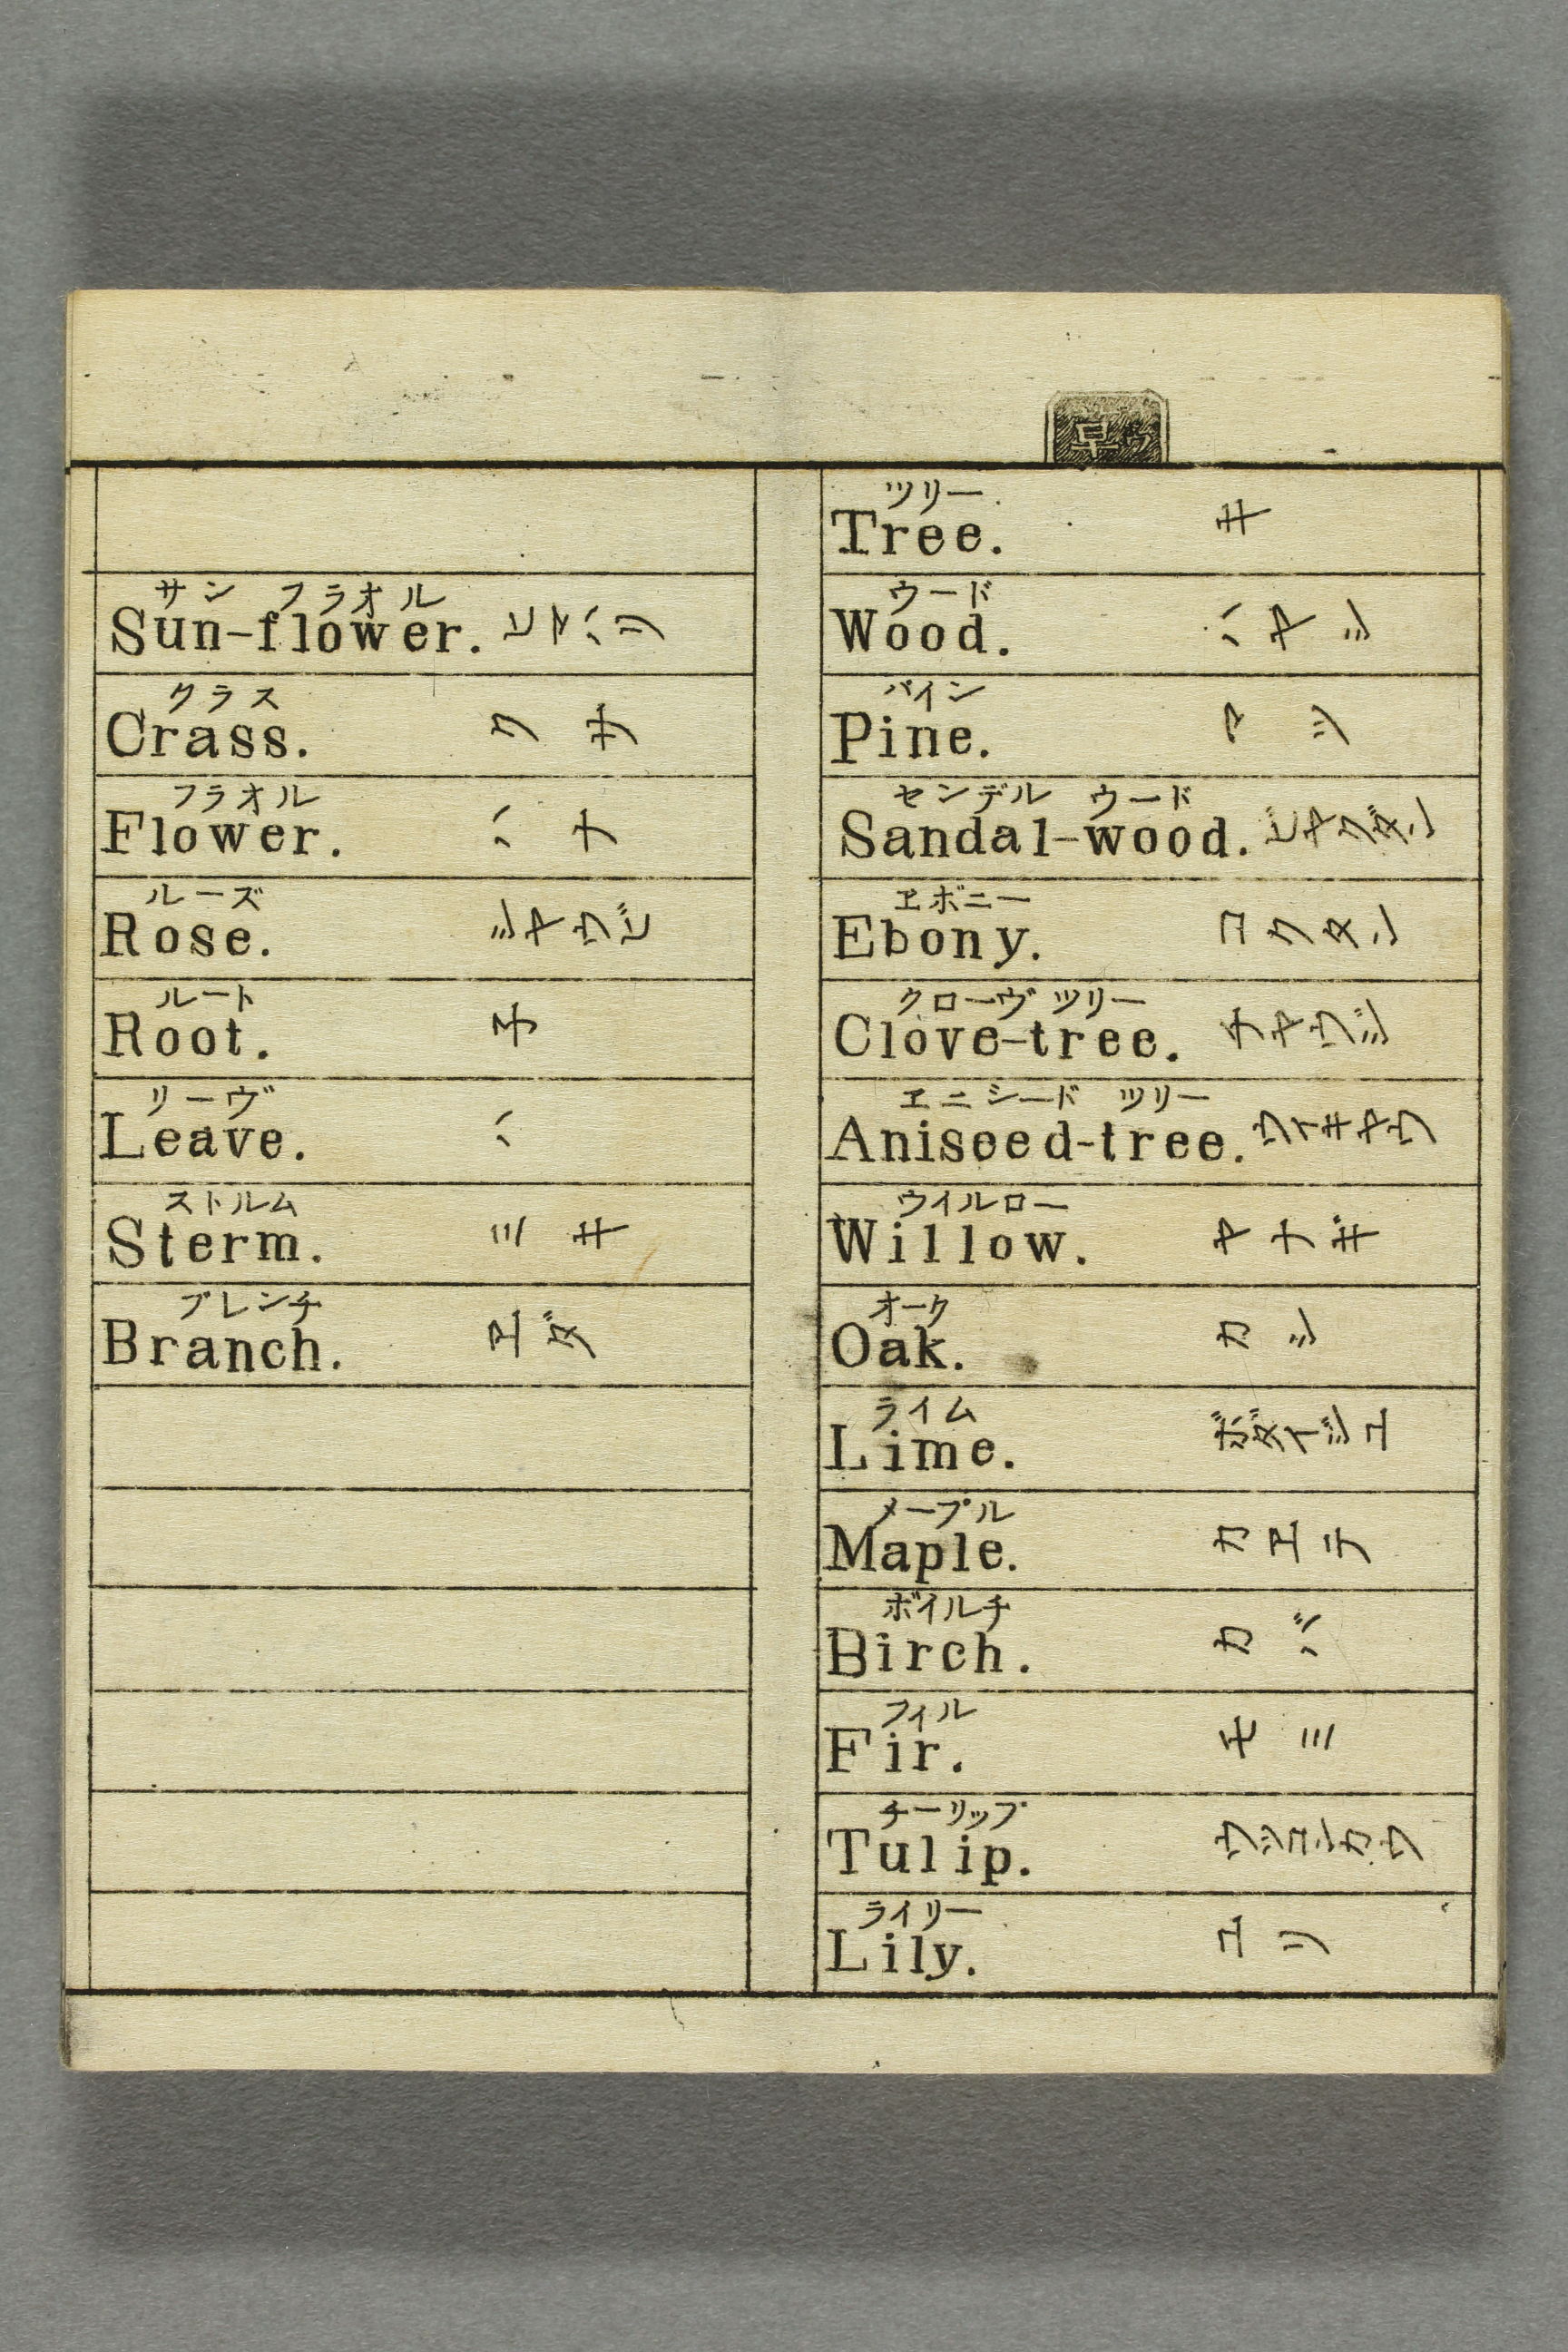 ツリー
Tree. キ
ウード
Wood. ハヤシ
パイン
Pine. マツ
センデル ウード
Sandal-wood. ビヤクダン
ヱボニー
Ebony. コクタン
クローヴ ツリー
Clove-tree. チヤウジ
ヱニシード ツリー
Aniseed-tree. ウイキヤウ
ウイルロー
Willow. ヤナギ
オーク
Oak. カシ
ライム
Lime. ボダイジユ
メープル
Maple. カエデ
ボイルチ
Birch. カバ
フィル
Fir. モミ
チーリップ
Tulip. ウツコンカウ
ライリー
Lily. ユリ
サン フラオル
Sun-flower. ヒマハリ
クラス
Crass. クサ
フラオル
Flower. ハナ
ルーズ
Rose. シヤウビ
ルート
Root. ネ
リーヴ
Leave. ハ
ストルム
Sterm. ミキ
ブレンチ
Branch. エダ